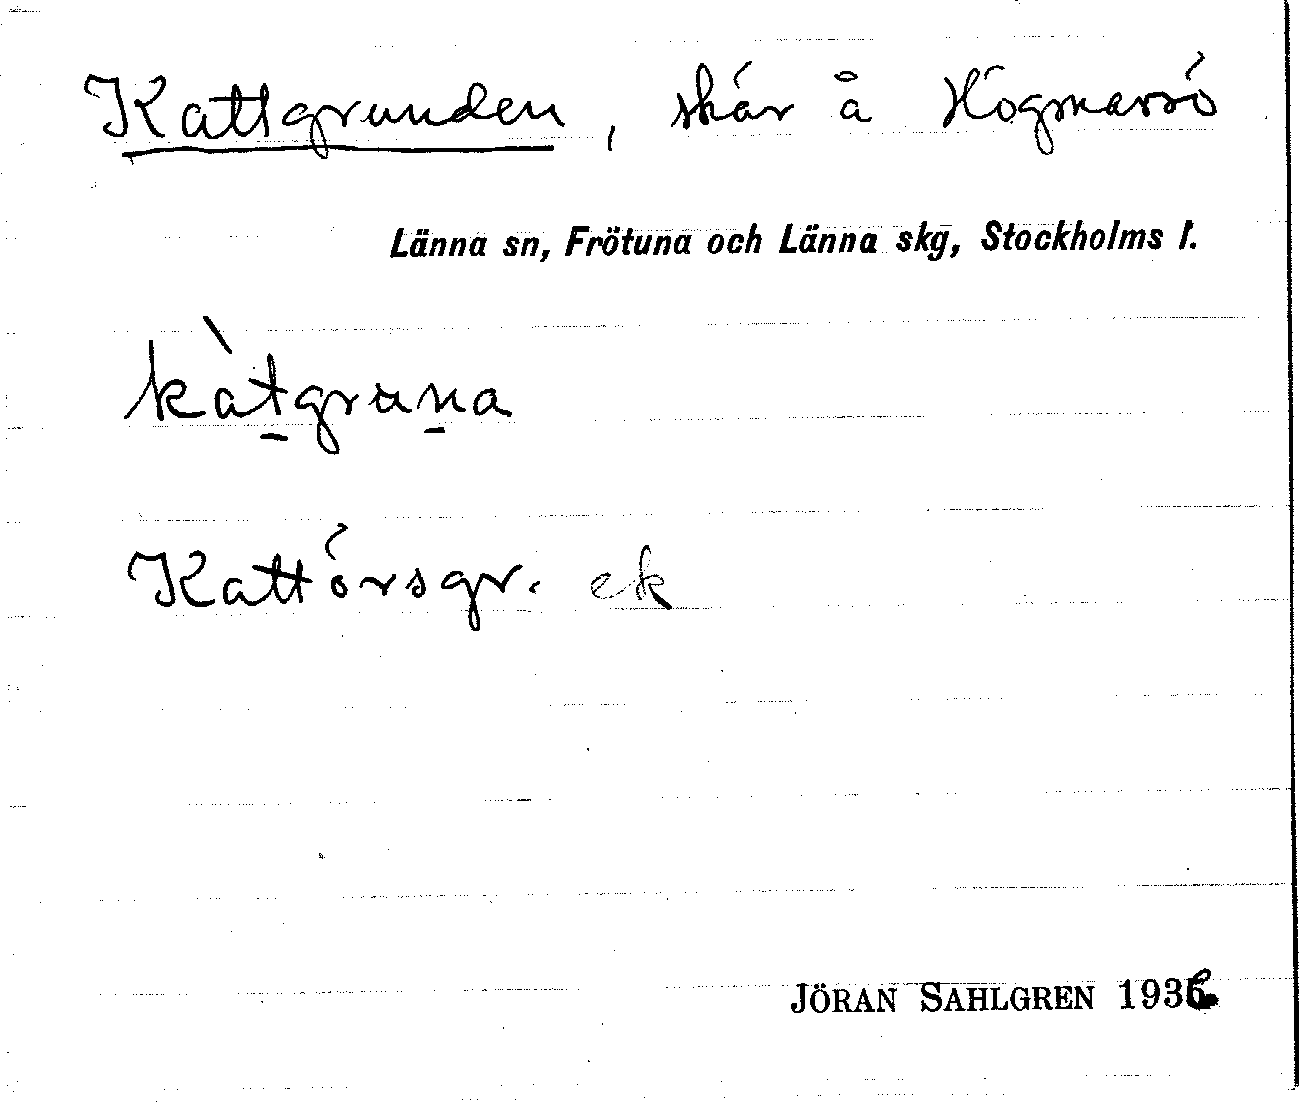 Kattgrunden, skär å Högmarsö
Länna sn, Frötuna och Länna skg, Stockholms l.
kàt̠grun̠a
Kattörsgr. ek
JÖRAN SAHLGREN 1936.